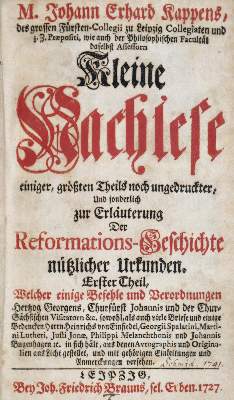 M. Johann Erhard Kappens,
des grossen Fürsten-Collegii zu Leipzig Collegiaten und
z. Z. Præpositi, wie auch der Philosophischen Facultät
daselbst Assessorn
Kleine
Nachlese
einiger, größten Theils noch ungedruckter,
Und sonderlich
zur Erläuterung
Der
Reformations-Geschichte
nützlicher Urkunden.
Erster Theil,
Welcher einige Befehle und Verordnungen
Hertzog Georgens, Churfürst Johannis und der Chur-
Sächsischen Visitatorn &c. sowohl, als auch viele Briefe und einige
Bedencken Herrn Heinrichs von Einsiedel, Georgii Spalatini, Marti-
ni Lutheri, Justi Jonæ, Philippi Melanchthonis und Johannis
Bugenhagen &c. in sich hält, aus deren Avtographis und Origina-
lien ans Licht gestellet, und mit gehörigen Einleitungen und
Anmerckungen versehen.
1741.
LEIPZIG,
Bey Joh. Friedrich Brauns, sel. Erben. 1727.